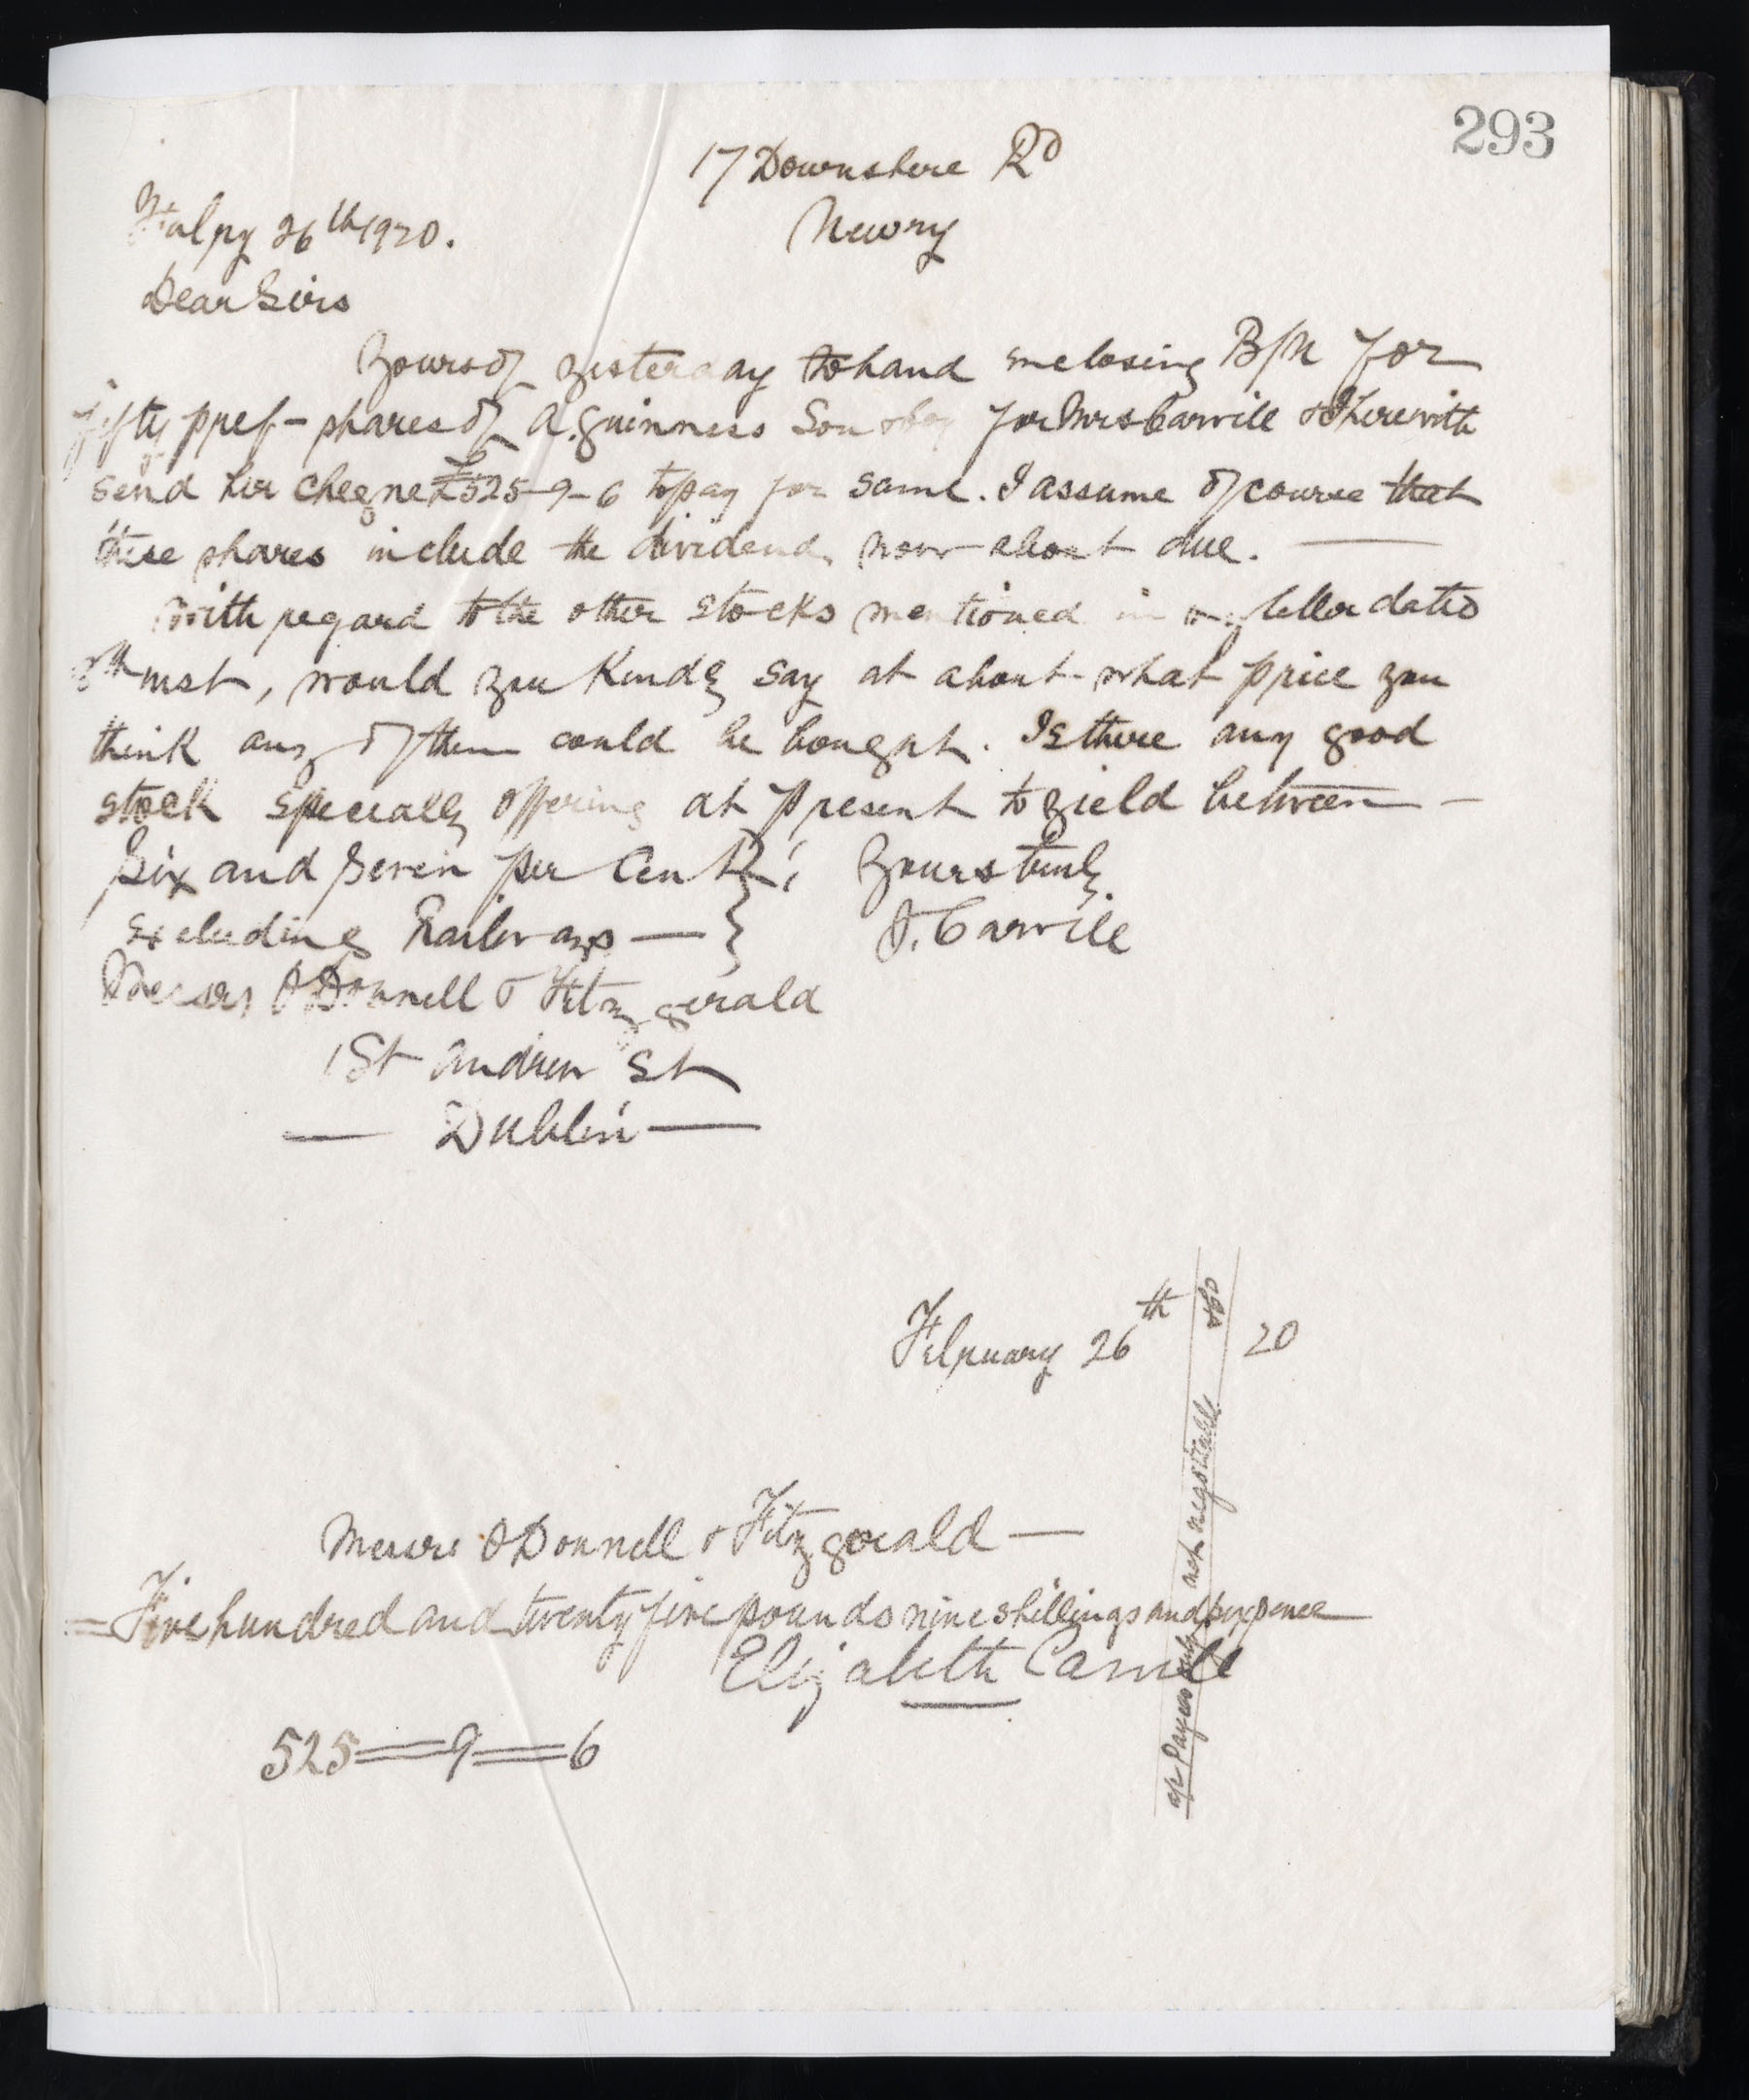 293
17 Downshire Rd
Newry
Febry 26th 1920.
Dear Sirs
Yours of yesterday to hand enclosing B/N for
fifty pref - shares of A. Guinness Son & Coy for Mrs Carvile & I herewith
send her cheque £525-9-6 to pay for same. I assume of course that
these shares include the dividend, now about due.
With regard to the other stocks mentioned in my letter dated
inst, would you kindly say at about what price you
think any of them could be bought. Is there any good
stock specially offering at present to yield between -
six and seven per cent,
excluding Railways —
Yours truly
J. Carvile
Messrs O'Donnell & Fitzgerald
1 St Andrew St
— Dublin —
February 26th 20
Messrs O'Donnell & Fitzgerald —
= Five hundred and twenty five pounds nine shillings and sixpence
Elizabeth Carvile
525 = 9 = 6
a/c Payees only not negotiable & Co